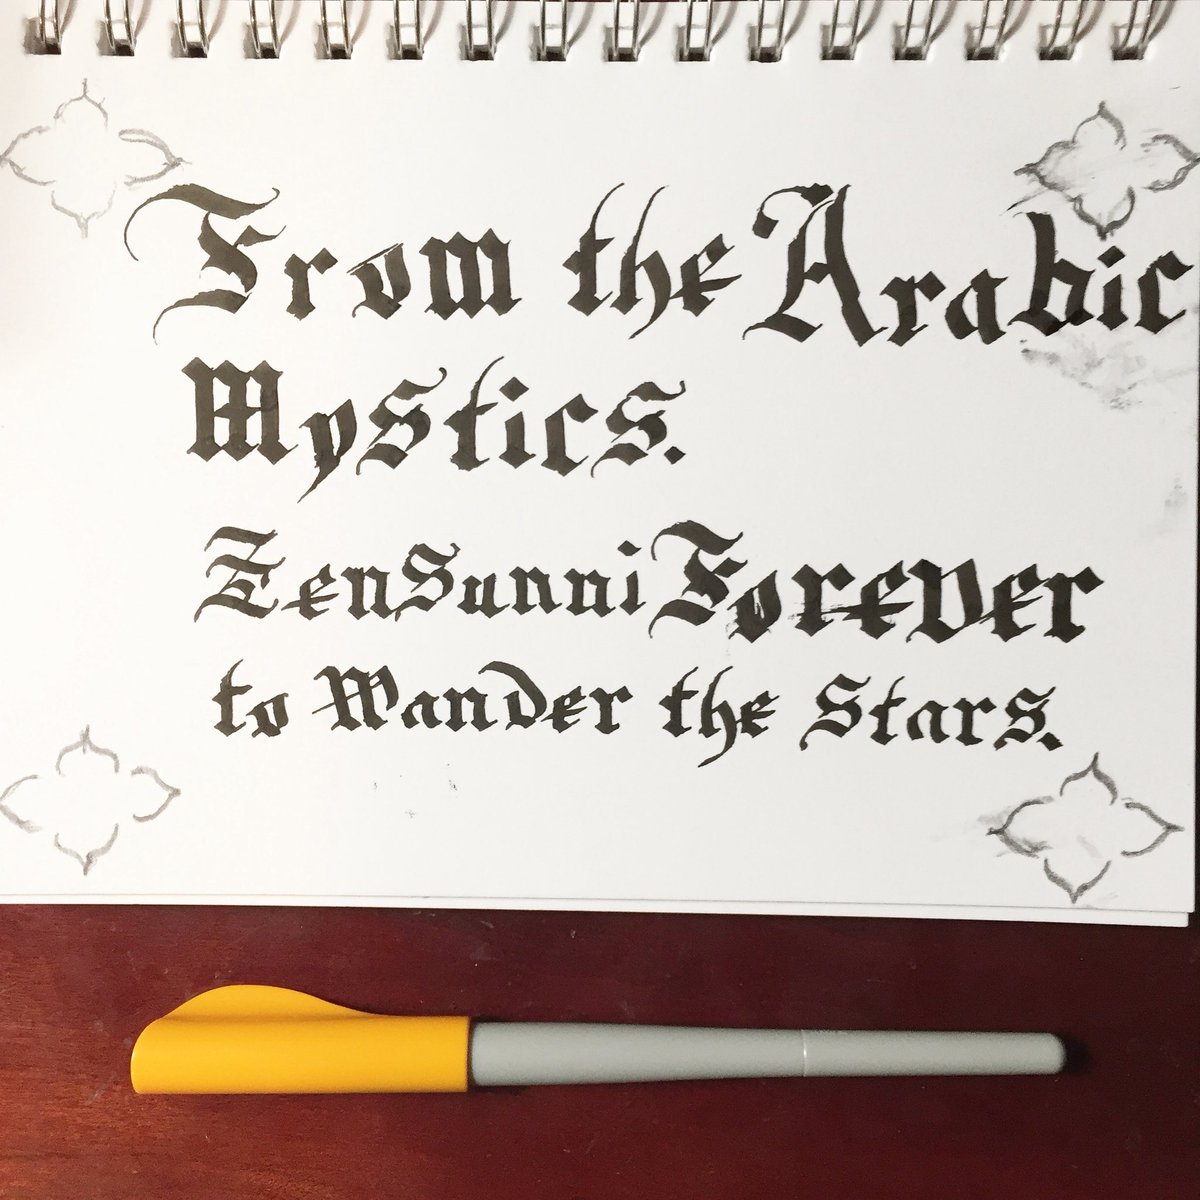 From the Arabic
Mystics.
ZenSunni Forever
to Wander the Stars.